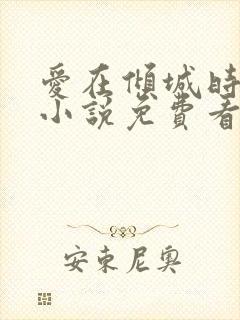 愛在傾城時
小說免費看
安東尼奧